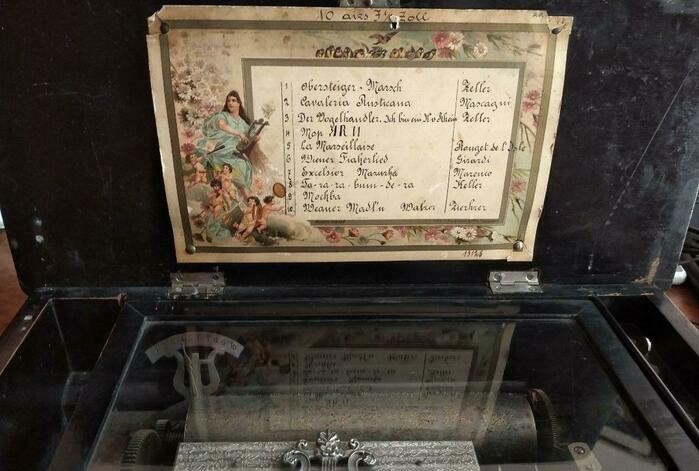 10 airs 7½ Zoll
1 Obersteiger-Marsch Zeller
2 Cavaleria Rusticana Mascagni
3 Der Vogelhändler. Ich bin ein Zeller
4 Мор ЯR II
5 La Marseillaise Rouget de l'Isle
6 Wiener Fiakerlied Girardi
7 Excelsior Mazurka Marenco
8 Ta-ra-ra-bum-de-ra Keller
9
10 Weaner Madl'n Walzer Zierhrer